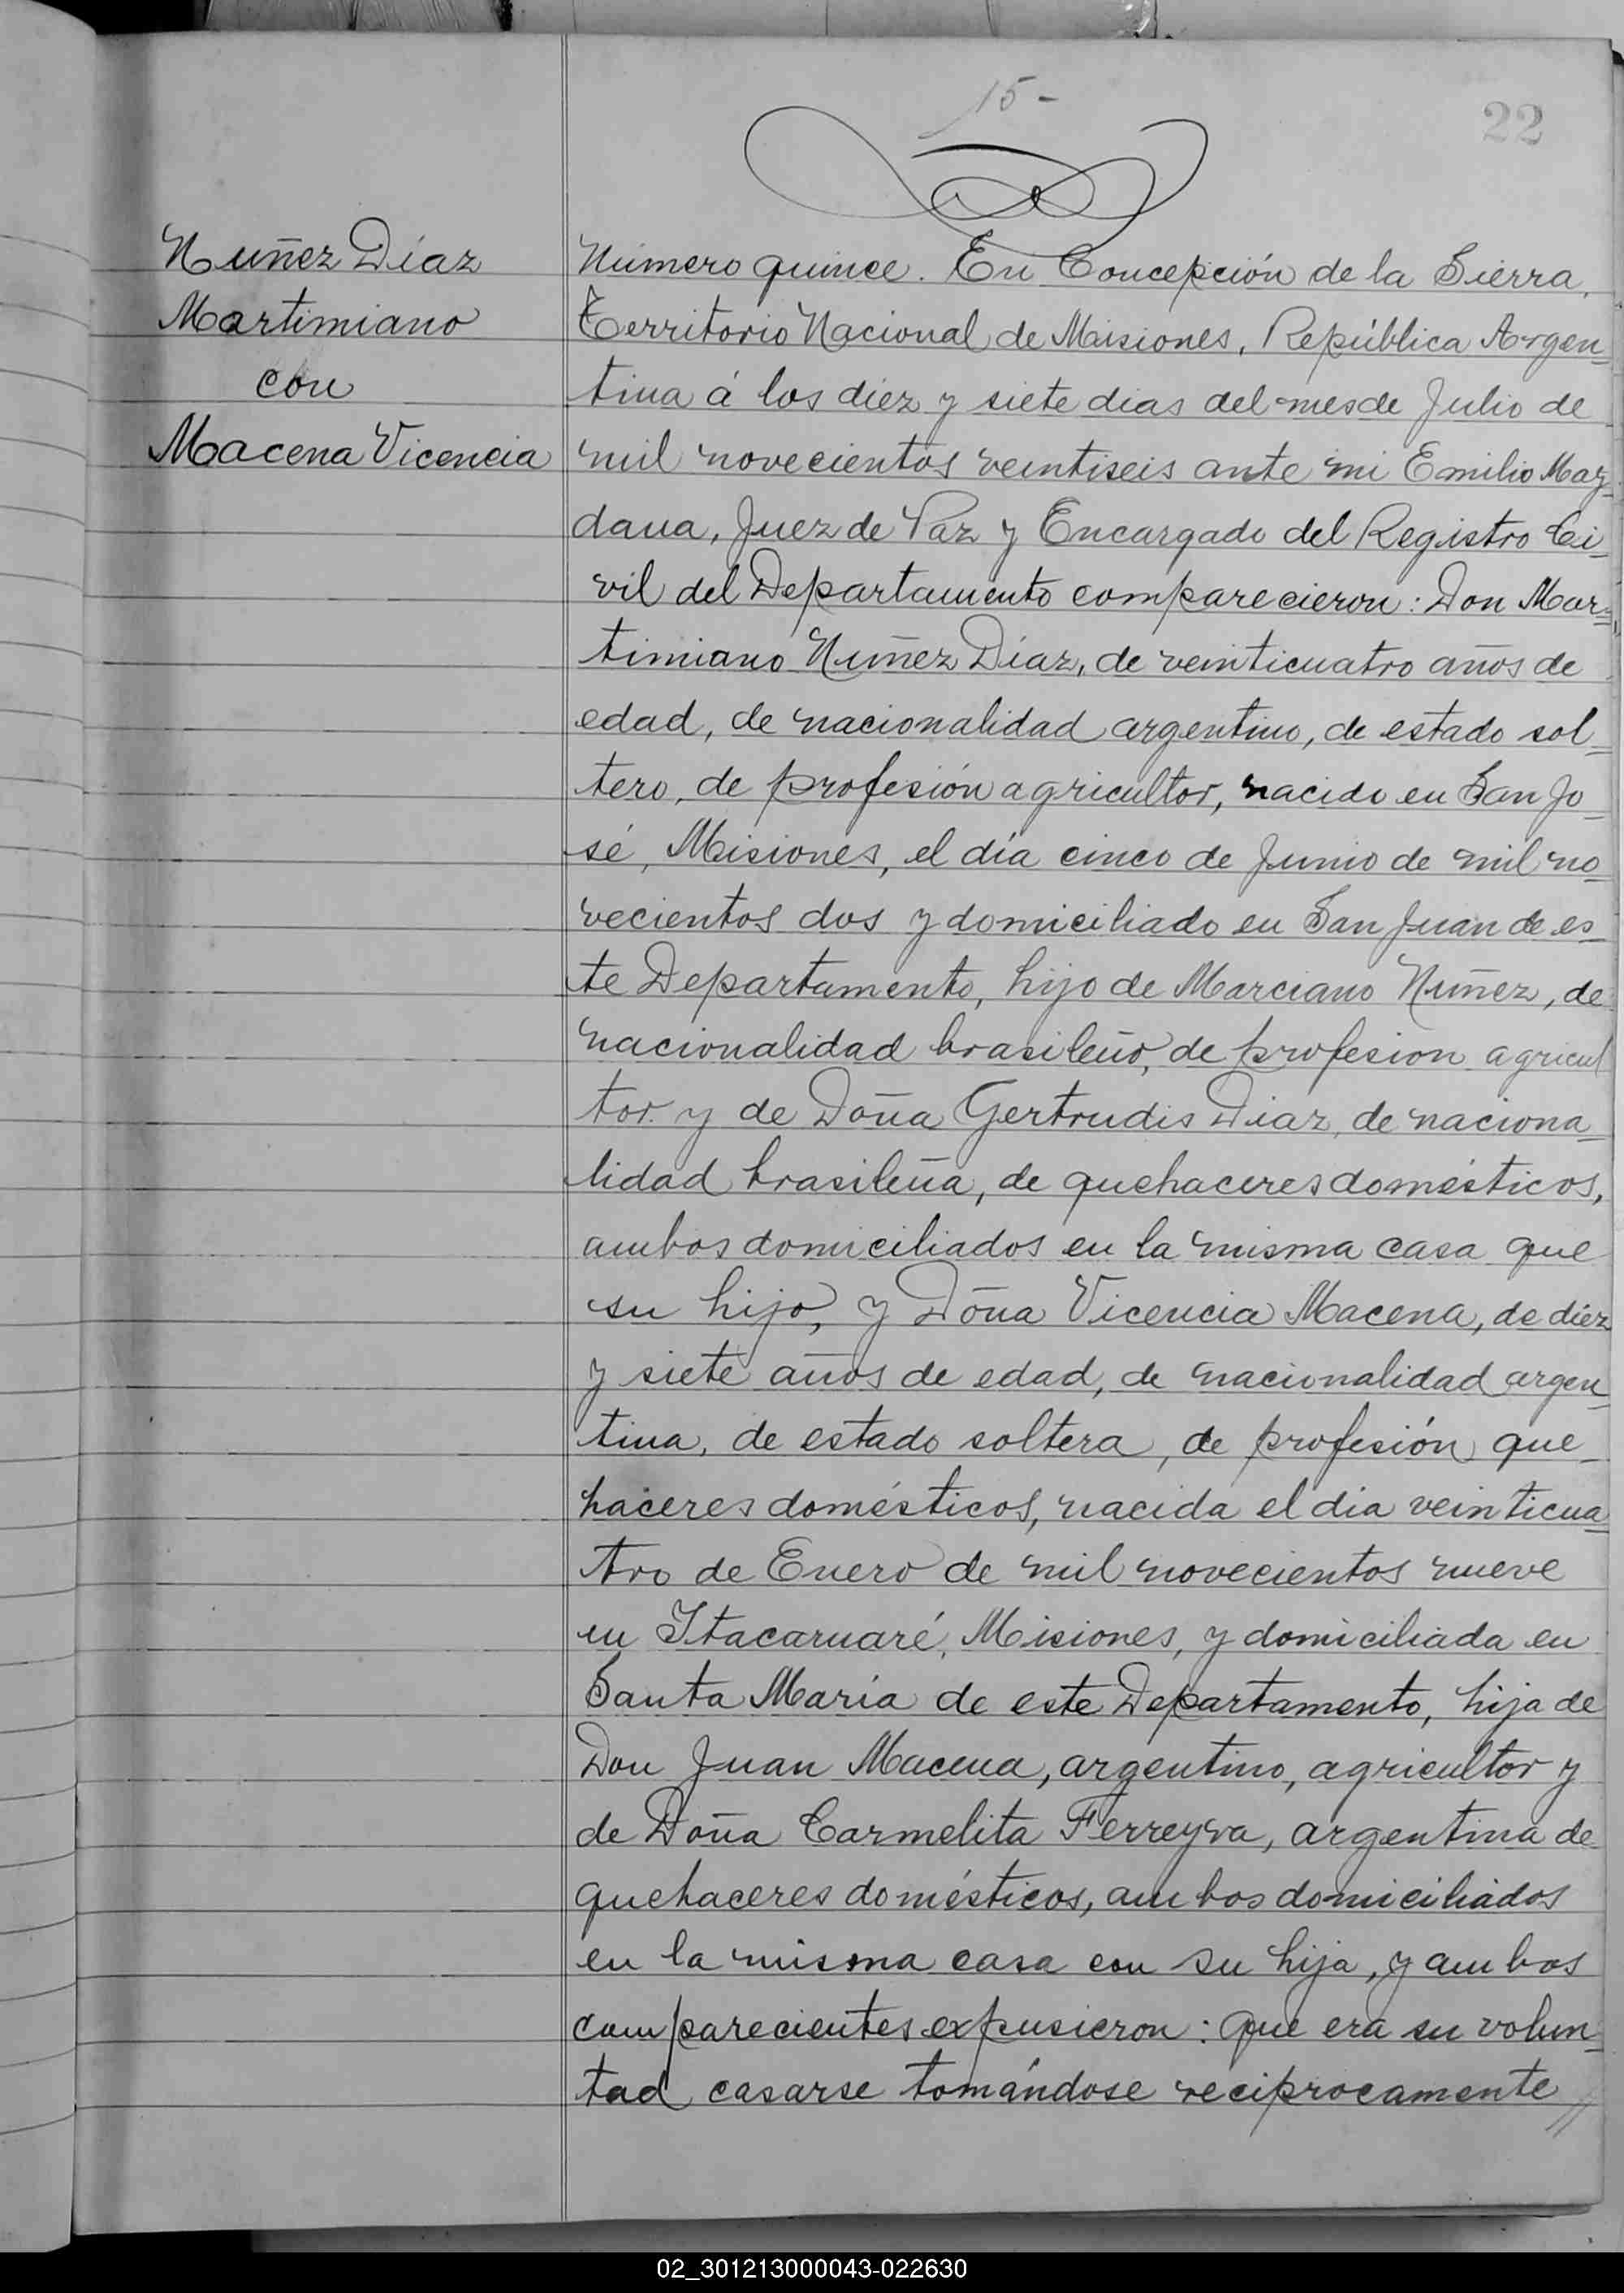 15-
22
Nuñez Díaz
Martimiano
con
Macena Vicencia
Número quince. En Concepción de la Sierra,
Territorio Nacional de Misiones, República Argen-
tina á los diez y siete dias del mes de Julio de
mil novecientos veintiseis ante mi Emilio May-
dana, Juez de Paz y Encargado del Registro Ci-
vil del Departamento comparecieron: Don Mar-
timiano Nuñez Díaz, de veinticuatro años de
edad, de nacionalidad argentino, de estado sol-
tero, de profesión agricultor, nacido en San Jo-
sé, Misiones, el día cinco de Junio de mil no-
vecientos dos y domiciliado en San Juan de es-
te Departamento, hijo de Marciano Nuñez, de
nacionalidad brasileño, de profesion agricul
tor y de Doña Gertrudis Diaz, de naciona-
lidad brasileña, de quehaceres domésticos,
ambos domiciliados en la misma casa que
su hijo, y Doña Vicencia Macena, de diez
y siete años de edad, de nacionalidad argen-
tina, de estado soltera, de profesión que-
haceres domésticos, nacida el dia veinticua-
tro de Enero de mil novecientos nueve
en Itacaruaré, Misiones, y domiciliada en
Santa María de este Departamento, hija de
Don Juan Macena, argentino, agricultor y
de Doña Carmelita Ferreyra, argentina de
quehaceres domésticos, ambos domiciliados
en la misma casa con su hija, y ambos
comparecientes expusieron: que era su volun-
tad casarse tomándose reciprocamente //
02_301213000043-022630